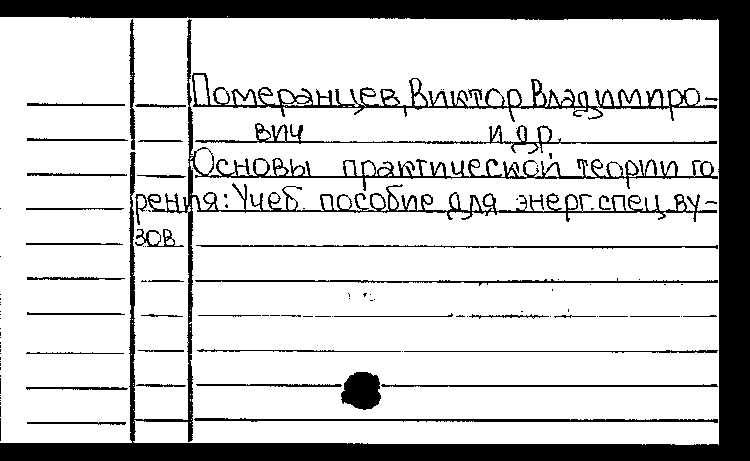 Померанцев, Виктор Владимиро-
вич и др.
Основы практической теории го
рения: Учеб. пособие для энерг. спец. ву-
зов